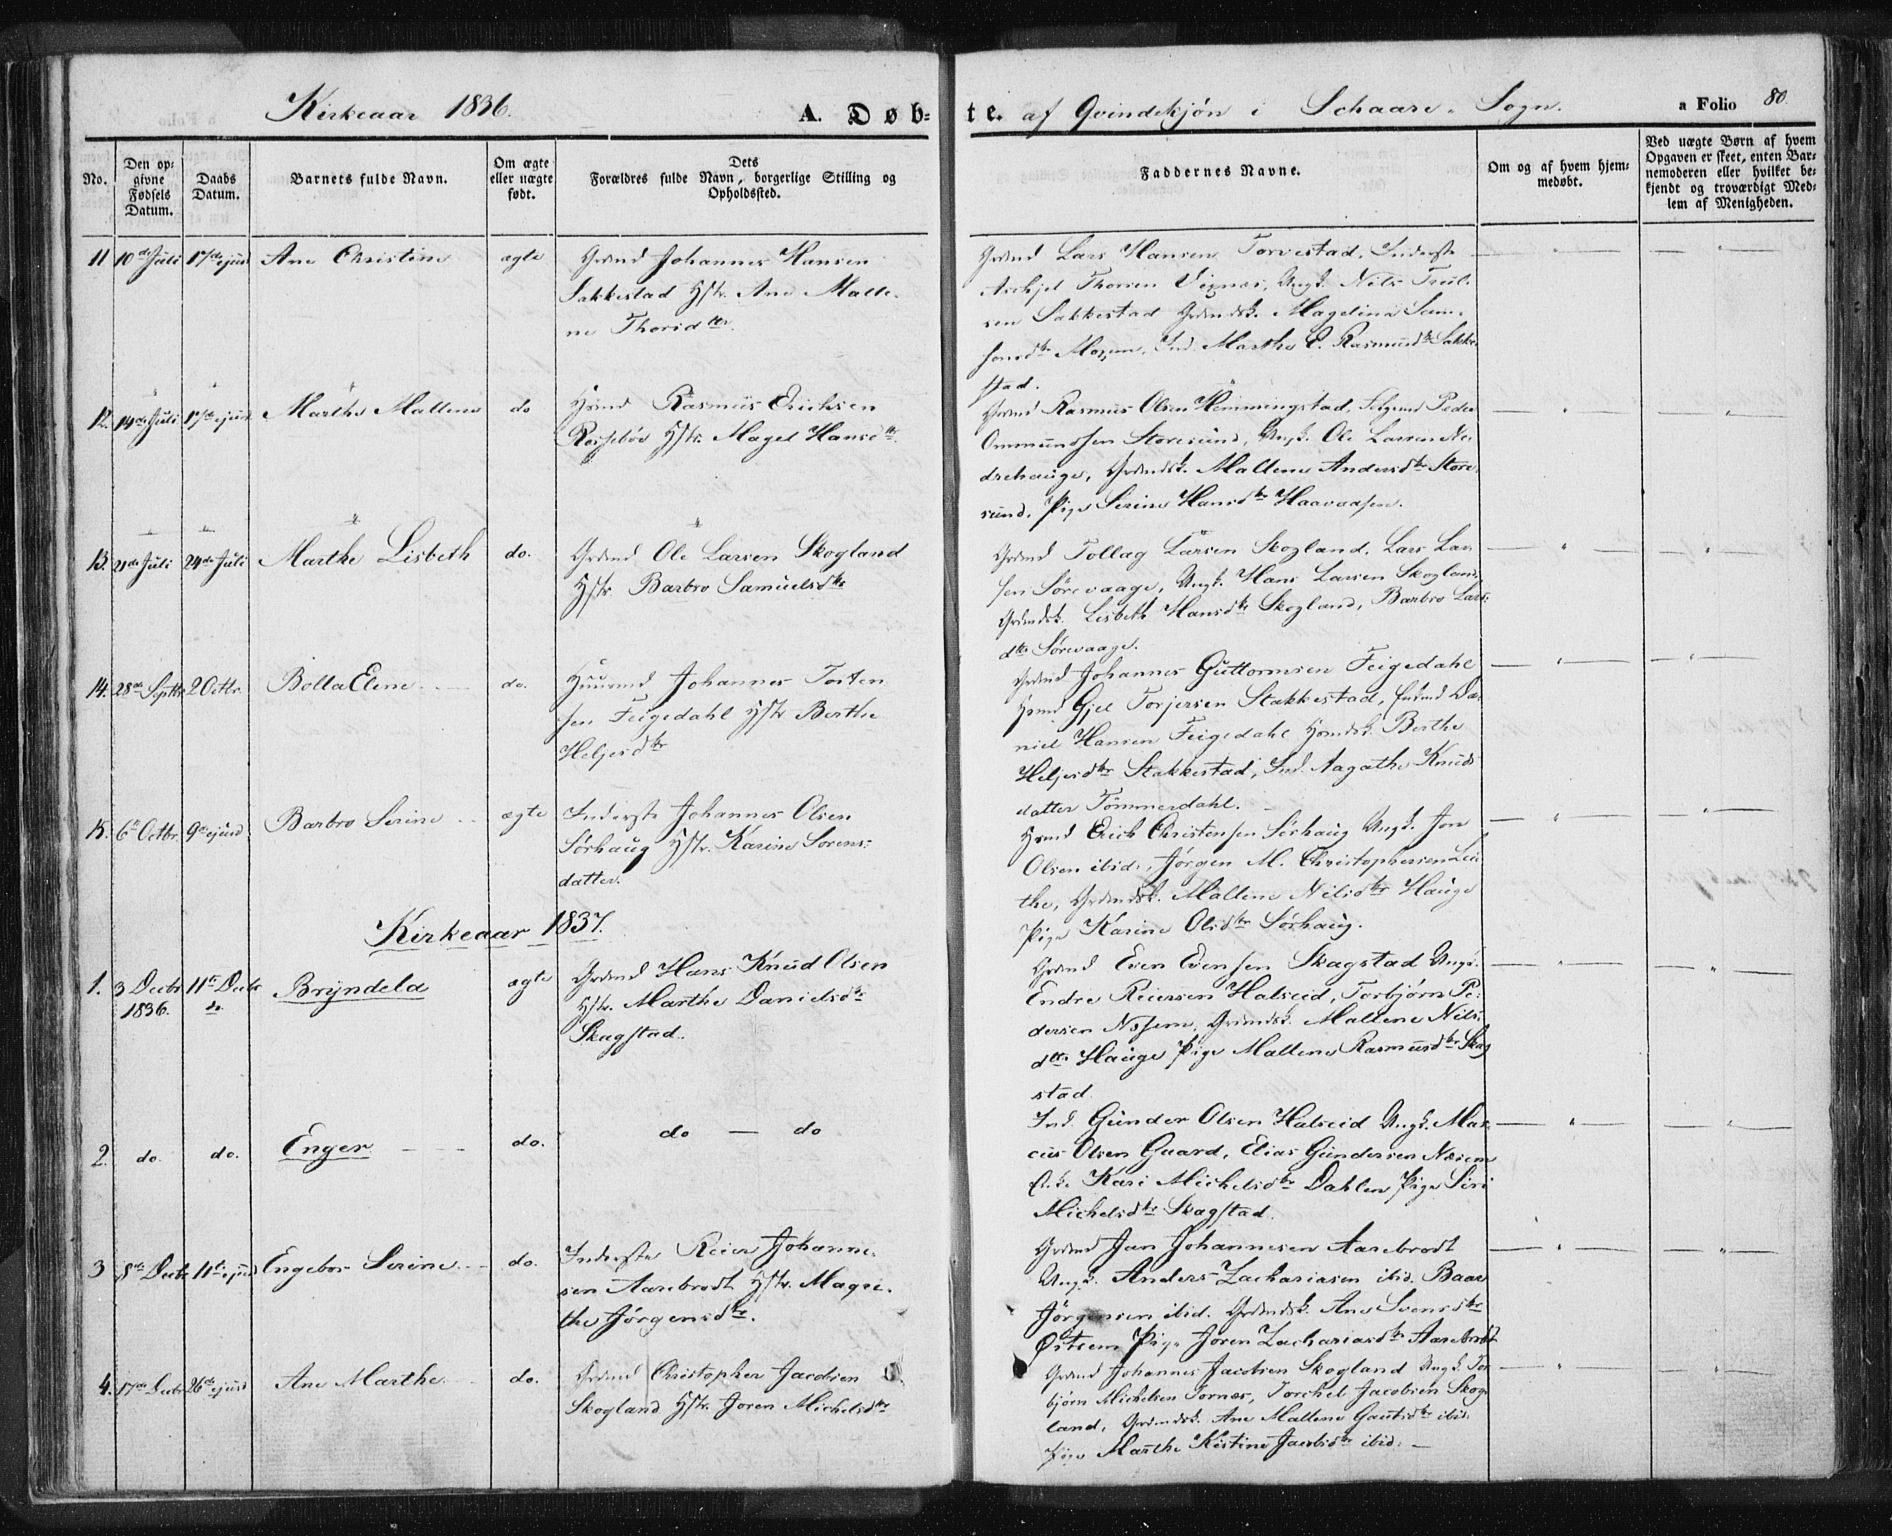 Kirkeaar 1836. A. Døb-
te. af Qvindekjøn i Schaare- Sogn. a Folio 80.
No.
Den op-
givne
Fødsels
Datum.
Daabs
Datum.
Barnets fulde Navn.
Om ægte
eller uægte
født.
Dets
Forældres fulde Navn, borgerlige Stilling og
Opholdssted.
Faddernes Navne.
Om og af hvem hjem-
medøbt.
Ved uægte Børn af hvem
Opgaven er skeet, enten Bar-
nemoderen eller hvilket be-
kjendt og troværdigt Med-
lem af Menigheden.
11 10de Juli 17de ejusd Ane Christine ægte Grdmd Johannes Hansen
Sakkestad Hstr. Ane Malle-
ne Thorsdtr.
Grdmd Lars Hansen Torvestad, Inderste
Thorsen Vixnæs, Ungk. Nils Truls-
sen Sakkestad Grdmdsk. Magelina Sam-
sonsdtr Ind. Marthe E. Rasmusdtr Sakke-
stad.
12. 14de Juli 17de ejusd Marthe Mallene do Hsmd Rasmus Erichsen
Rossebøe Hstr. Magel Hansdtr.
Grdmd Rasmus Olsen Hemmingstad, Peder
Ommundssen Storesund, Ungk. Ole Larsen Ne-
drehauge, Grdmdsk. Mallene Andersdtr Store-
sund, Pige Serine Hansdtr Haavaasen.
13. 21de Juli 24de Juli Marthe Lisbeth do. Grdmd Ole Larsen Skogland
Hstr Barbro Samuelsdtr
Grdmd Tollag Larsen Skogland, Lars Lar-
sen Sørevaage, Ungk. Hans Larsen Skogland,
Grdmdsk. Lisbeth Hansdtr Skogland, Barbro Lars-
dtr Sørevaage.
14. 28de Septbr 2 Octbr. Bolla Elene do. Huusmd Johannes Tosten-
sen Feigedahl Hstr Berthe
Heljesdtr
Grdmd Johannes Guttormsen Feigedahl
Hsmd Gjel Torjersen Stakkestad, Da-
niel Hansen Feigedahl Hsmdsk. Berthe
Heljesdtr Stakkestad, Ind. Aagathe Knuds-
datter Tømmerdahl.
15. 6te Octbr. 9de ejusd Barbro Serine ægte Inderste Johannes Olsen
Sørhaug Hstr. Karine Sørens-
datter.
Hsmd Erich Christensen Sørhaug Ungk. Jon
Olsen ibid., Jørgen M. Christophersen Lei-
the, Grdmdsk. Mallene Nilsdtr Hauge
Pige Karine Olsdtr Sørhaug.
Kirkeaar 1837.
1. 3 Decbr
1836. 11te Decbr
do. Bryndela ægte Grdmd Hans Knud Olsen
Hstr. Marthe Danielsdtr
Skagstad.
Grdmd Even Evensen Skagstad Ungk.
Endre Reiersen Halseid, Torbjørn Pe-
dersen Grdmdsk. Mallene Nils-
dtr Hauge Pige Mallene Rasmusdtr Skag-
stad.
2. do. do. Enger do. do — do
Ind. Gunder Olsen Halseid Ungk. Mar-
cus Olsen Guard, Elias Gundersen
Kari Michelsdtr Dahlen, Pige Siri
Michelsdtr Skagstad.
3 8de Decbr 11te ejusd Engebor Serine do. Inderste Reier Johanne-
sen Aarebrodt Hstr. Magre-
the Jørgensdtr.
Grdmd Jan Johannesen Aarebrodt
Ungk. Anders Zachariasen ibid. Baar
Jørgensen ibid. Grdmdsk. Ane Svensdtr
Østrem Pige Joren Zachariasdtr Aarebrodt
4. 17de Decbr 26de ejusd Ane Marthe do. Grdmd Christopher Jacobsen
Skogland Hstr. Joren Michelsdtr
Grdmd Johannes Jacobsen Skogland Ungk. Tor-
bjørn Michelsen Tornæs, Torchel Jacobsen Skog-
land, Grdmdsk. Ane Mallene Gautsdtr ibid.
Pige Marthe Kistine Jacobsdtr ibid.